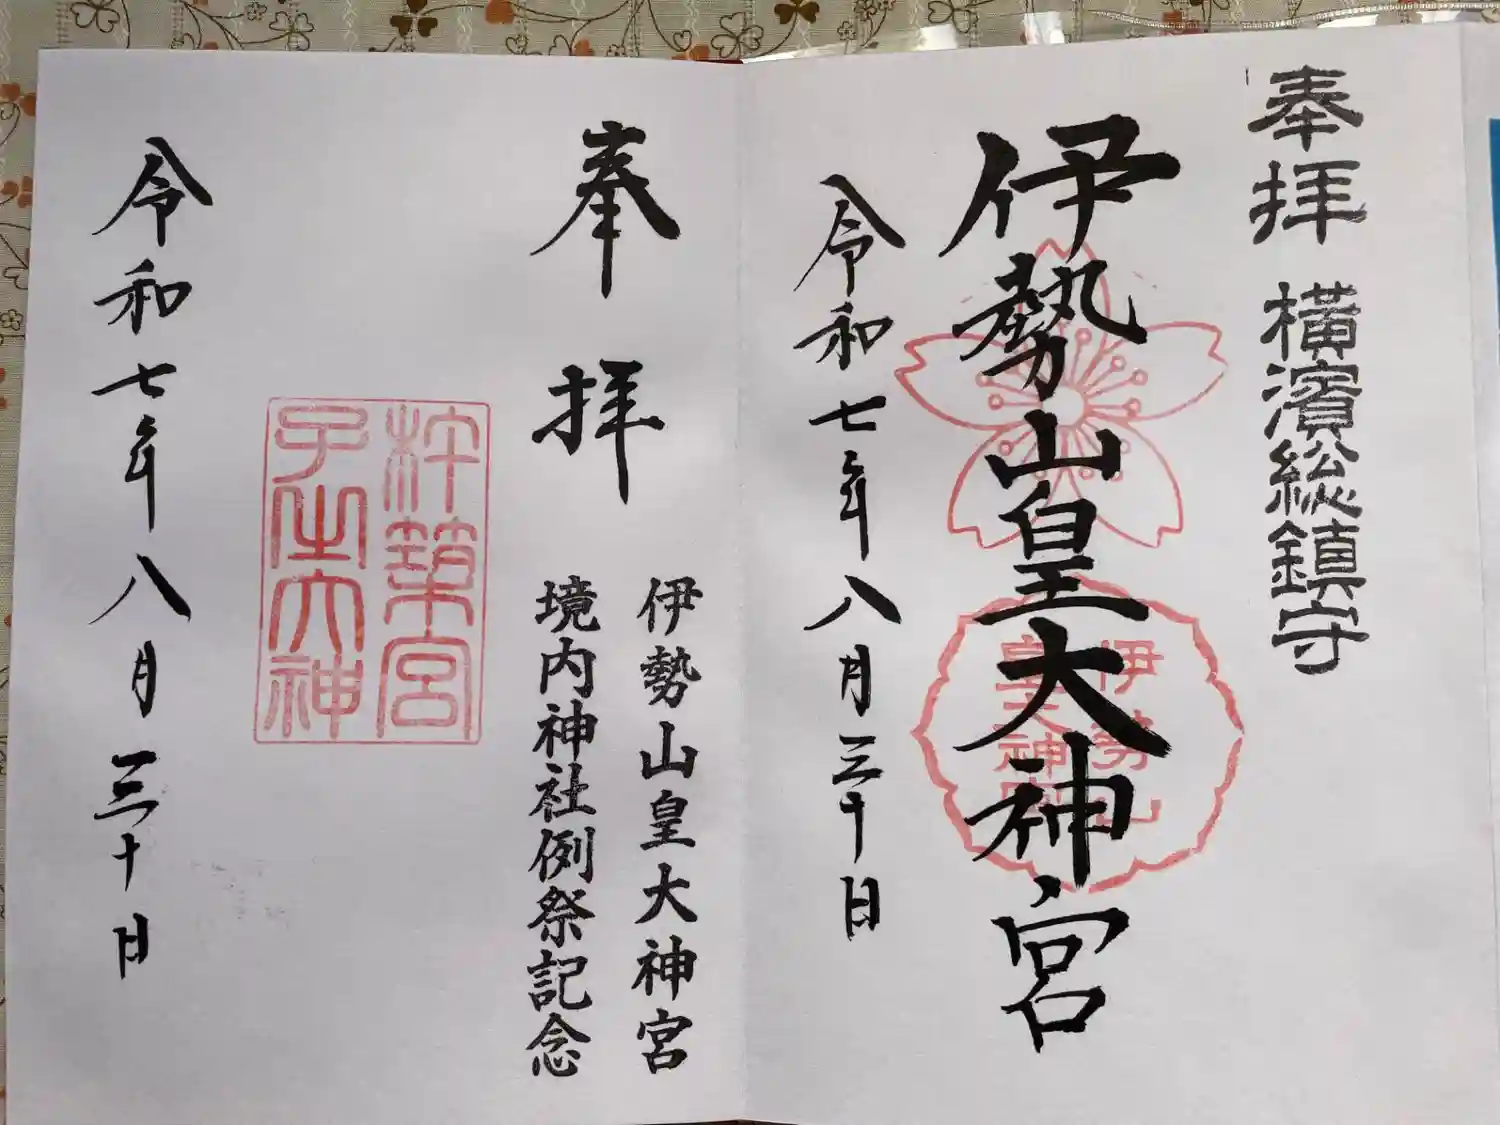 奉拝 横濱総鎮守
伊勢山皇大神宮
伊勢山
皇大神宮
令和七年八月三十日
奉拝
伊勢山皇大神宮
境内神社例祭記念
杵築宮
子之大神
令和七年八月三十日